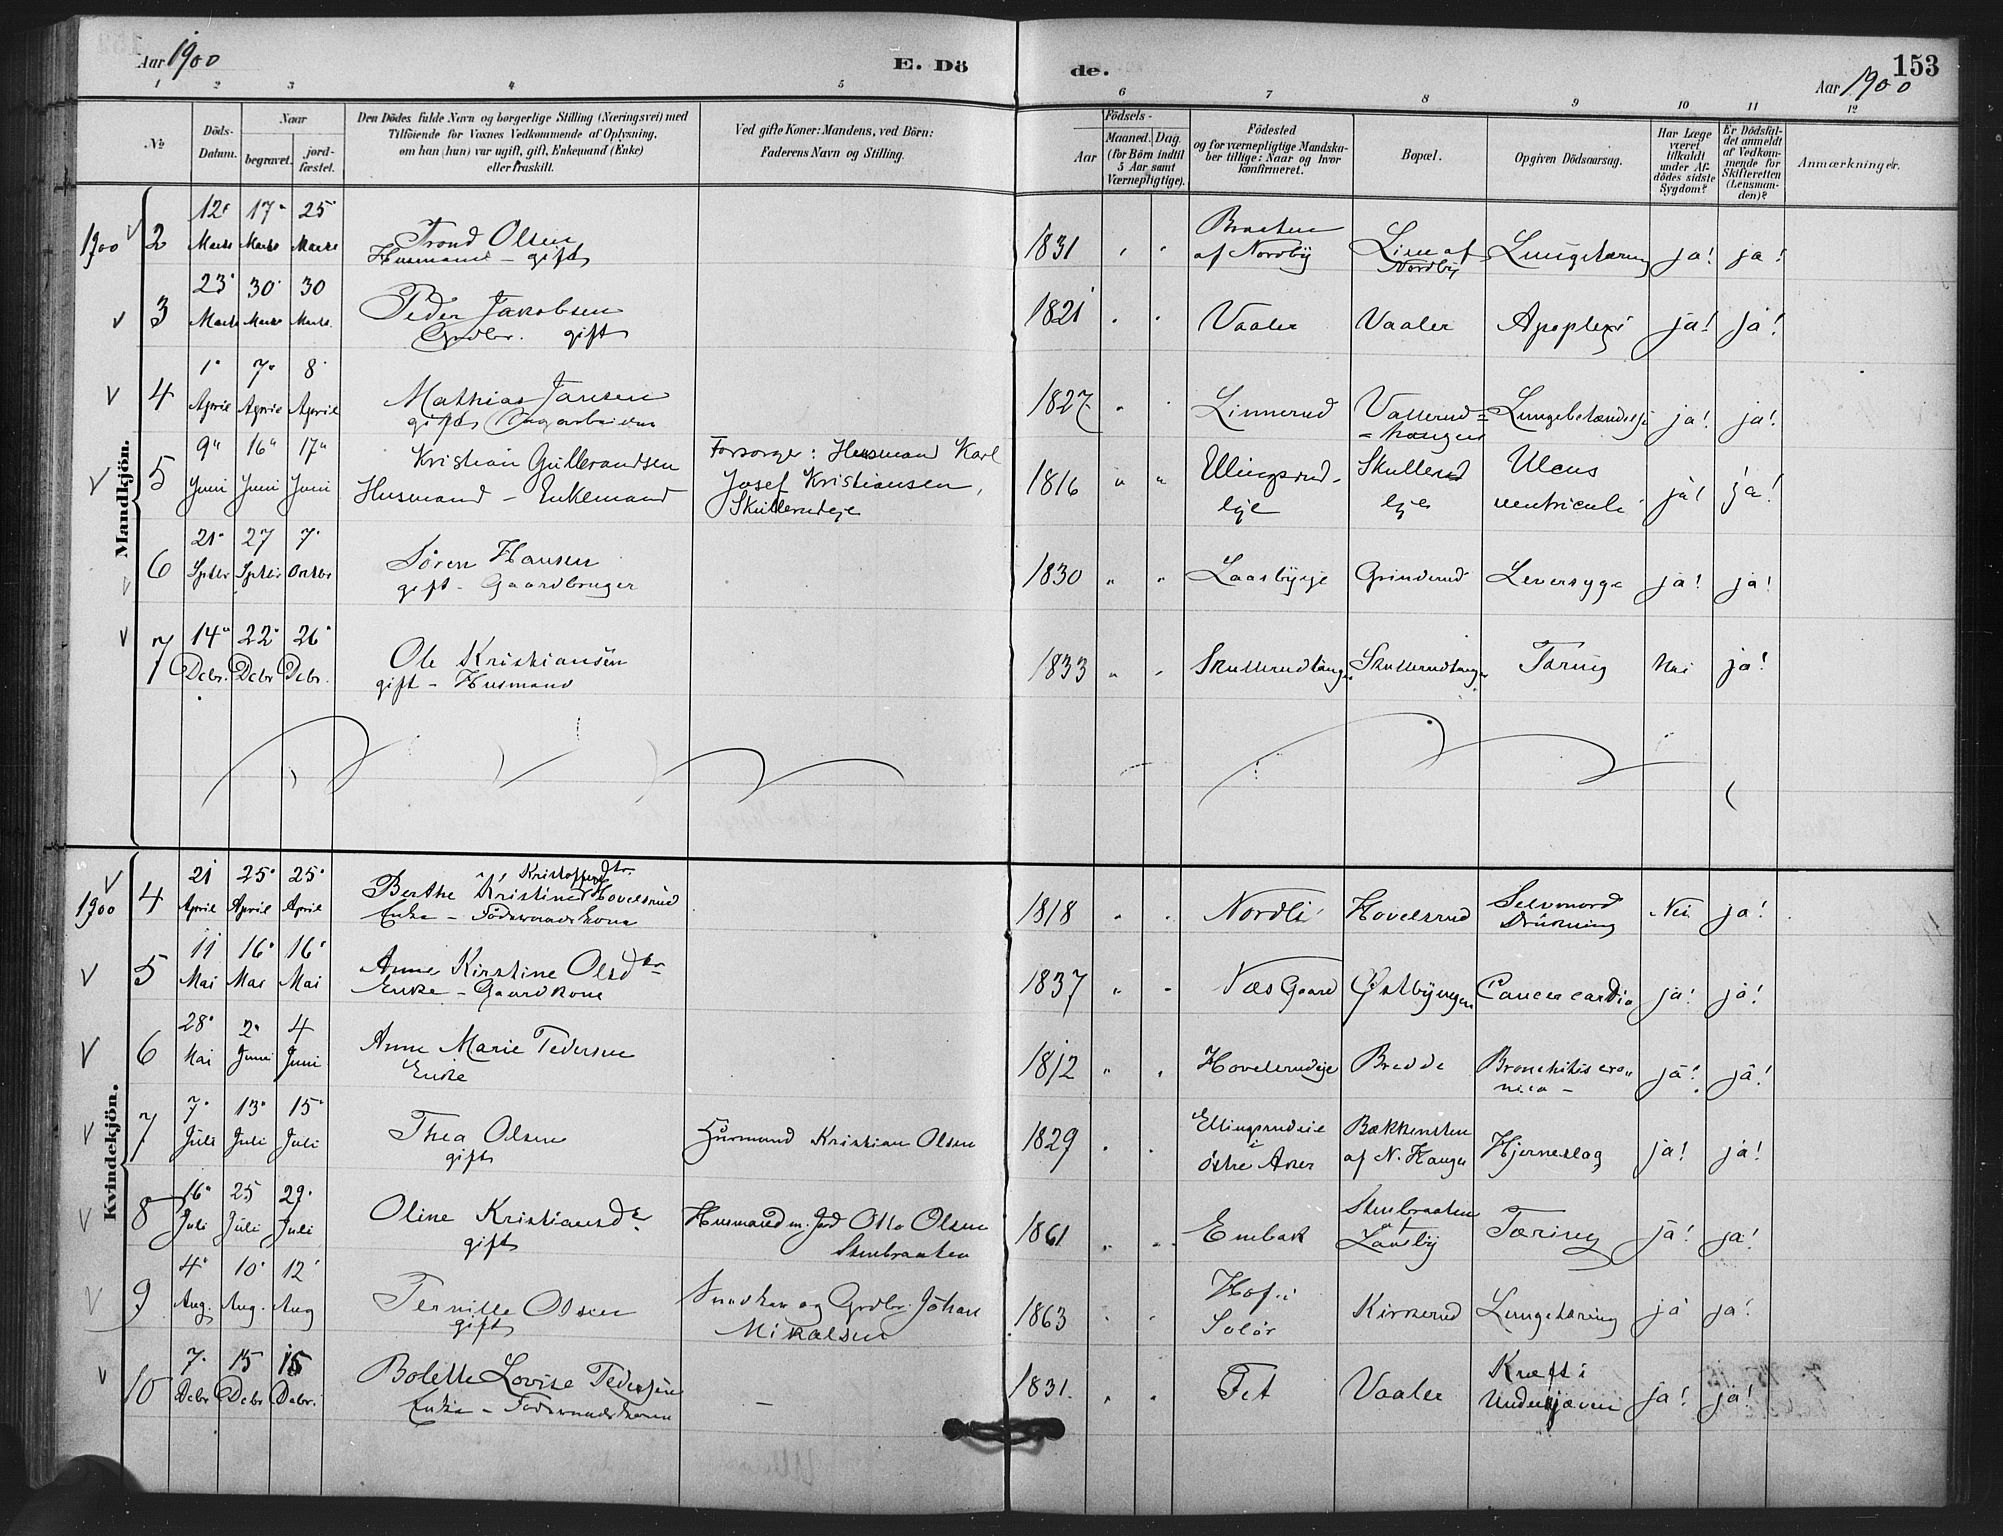 Aar 1900
E. Dö
de.
153
Aar 1900
1 2 3 4 5 6 7 8 9 10 11 12
№
Döds-
Datum.
Naar
begravet.
jord-
fæstet.
Den Dödes fulde Navn og borgerlige Stilling (Næringsvei) med
Tilföiende for Voxnes Vedkommende af Oplysning,
om han (hun) var ugift, gift, Enkemand (Enke)
eller fraskilt.
Ved gifte Koner: Mandens, ved Börn:
Faderens Navn og Stilling.
Födsels-
Aar
Maaned. Dag.
(for Börn indtil
5 Aar samt
Værnepligtige).
Födested
og for værnepligtige Mandska-
ber tillige: Naar og hvor
konfirmeret.
Bopæl.
Opgiven Dödsaarsag.
Har Læge
været
tilkaldt
under Af-
dödes sidste
Sygdom?
Er Dödsfal-
det anmeldt
af Vedkom-
mende for
Skifteretten
(Lensman-
den)?
Anmærkninger.
Mandkjön.
1900 2 12 Marts 17 Marts 25 Marts
Trond Olsen
Husmand - gift
1831 Braaten af Nordby Lien af Nordby Lungetæring ja! ja!
3 23 Marts 30 Marts 30 Marts
Peder Jakobsen
Grdbr. gift
1821 Vaaler Vaaler Apoplexi ja! ja!
4 1 April 7 April 8 April
Mathias Jansen
gift
1827 Linnerud Lungebetændelse ja! ja!
5 9 Juni 16 Juni 17 Juni
Kristian Gulbrandsen
Husmand - Enkemand
Forsorger: Husmand Karl
Josef Kristiansen,
Skullerudeje
1816 Skullerud eje Ulcus ventriculi ja! ja!
6 21 Septbr 27 Septbr 7 Octbr
Sören Hansen
gift - Gaardbruger
1830 Laasbyeje Grinderud Leversyge ja! ja!
7 14 Debr. 22 Debr 26 Debr.
Ole Kristiansen
gift - Husmand
1833 Skullerudhauge Skullerudhauge Tæring Nei ja!
Kvindekjön.
1900 4 21 April 25 April 25 April
Kristoffersdtr.
Berthe Kristine Hovelsrud
Enke - Föderaadskone
1818 Nordli Hovelsrud Selvmord Drukning Nei ja!
5 11 Mai 16 Mai 16 Mai
Anne Kirstine Olsdtr
Enke - Gaardkone
1837 Næs Gaard Cancer cardia ja! ja!
6 28 Mai 2 Juni 4 Juni
Anne Marie Pedersen
Enke
1812 Hovelsrudeje Bredde Bronchitis cro-
nica - ja! ja!
7 7 Juli 13 Juli 15 Juli
Thea Olsen
gift
Husmand Kristian Olsen
1829 Ellingsrudeie i östre Aker Bækkensten af N. Hauger Hjerneslag ja! ja!
8 16 Juli 25 Juli 29 Juli
Oline Kristiansdtr.
gift
Husmand m. Jord Otto Olsen
Stenbraaten
1861 Enebak Stenbraaten Tæring ja! ja!
9 4 Aug. 10 Aug. 12 Aug
Pernille Olsen
gift
Snedker og Grdbr Johan
Mikalsen
1863 Hof i Solör Kirkerud Lungetæring ja ja!
10 7 Debr 15 Debr 15 Debr.
Bolette Lovise Pedersen
Enke - Föderaadskone
1831. Fet Vaaler Kræft i Underlivet ja! ja!